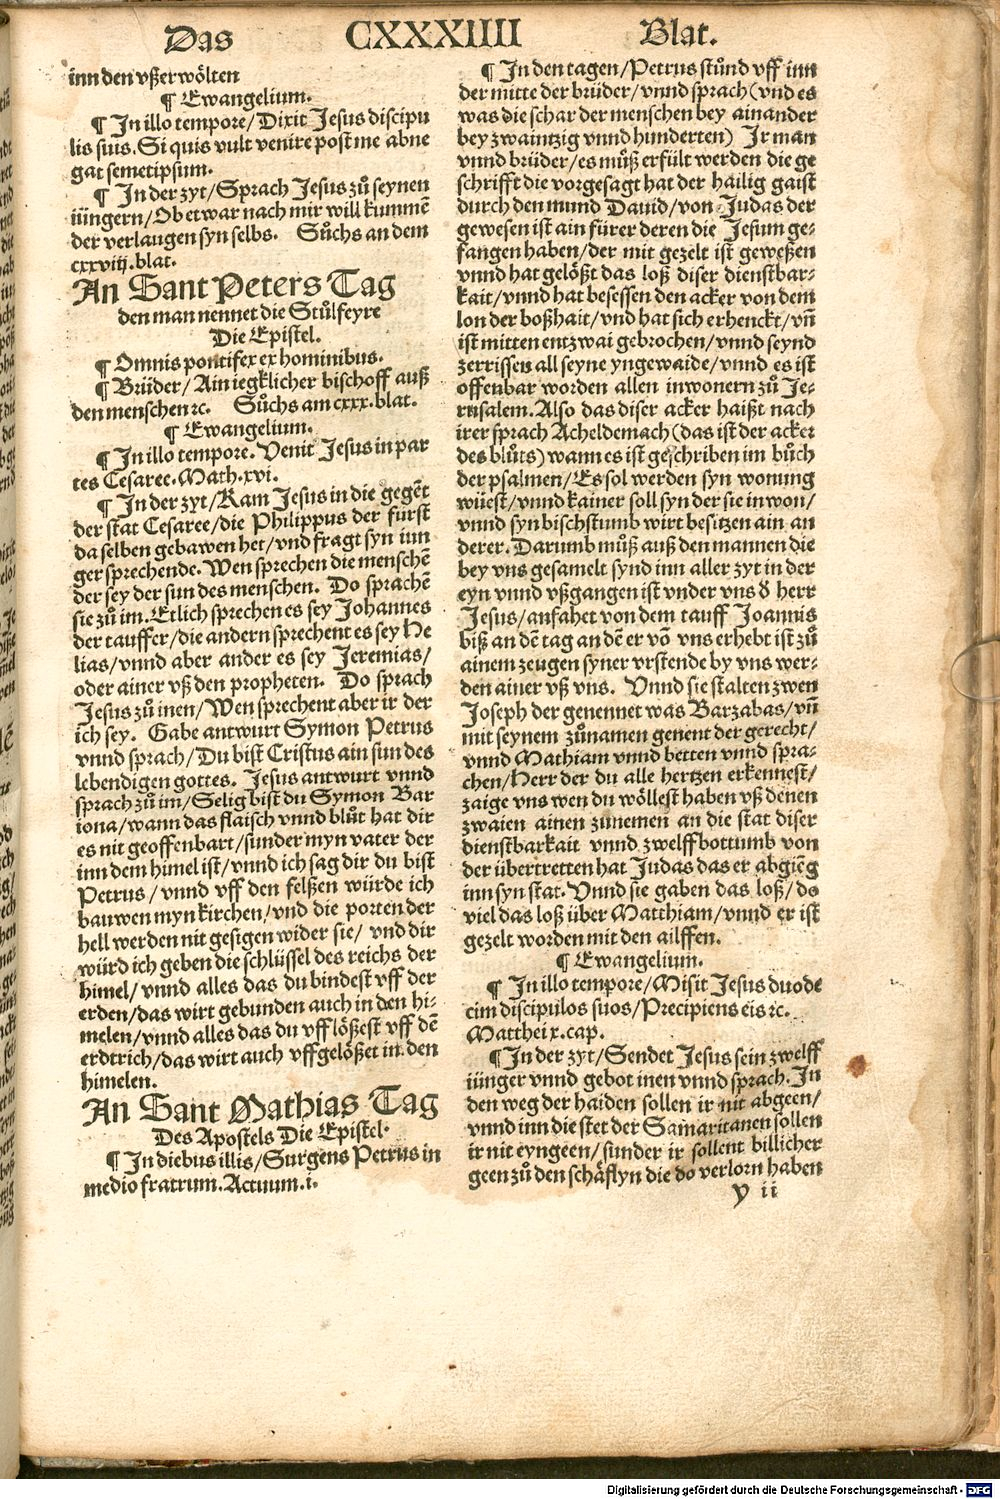 Das CXXXIIII Blat.
inn den vßerwölten
¶ Ewangelium.
¶ In illo tempore/Dixit Jesus discipu
lis suis. Si quis vult venire post me abne
gat semetipsum.
¶ In der zyt/Sprach Jesus zuͦ seynen
iüngern/Ob etwar nach mir will kummē
der verlaugen syn selbs. Suͦchs an dem
cxxviij.blat.
An Sant Peters Tag
den man nennet die Stuͦlfeyre
Die Epistel.
¶ Omnis pontifex ex hominibus.
¶ Brüder/Ain iegklicher bischoff auß
den menschen ꝛc. Suͦchs am cxxx.blat.
¶ Ewangelium.
¶ In illo tempore. Venit Jesus in par
tes Cesaree. Math.xvi.
¶ In der zyt/Kam Jesus in die gegēt
der stat Cesaree/die Philippus der fürst
da selben gebawen het/vnd fragt syn iun
ger sprechende. Wen sprechen die menschē
der sey der sun des menschen. Do sprachē
sie zuͦ im. Etlich sprechen es sey Johannes
der tauffer/die andern sprechent es sey He
lias/vnnd aber ander es sey Jeremias/
oder ainer vß den propheten. Do sprach
Jesus zuͦ inen/Wen sprechent aber ir der
ich sey. Gabe antwurt Symon Petrus
vnnd sprach/Du bist Cristus ain sun des
lebendigen gottes. Jesus antwurt vnnd
sprach zuͦ im/Selig bist du Symon Bar
iona/wann das flaisch vnnd bluͦt hat dir
es nit geoffenbart/sunder myn vater der
inn dem himel ist/vnnd ich sag dir du bist
Petrus/vnnd vff den felßen würde ich
bauwen myn kirchen/vnd die porten der
hell werden nit gesigen wider sie/vnd dir
würd ich geben die schlüssel des reichs der
himel/vnnd alles das du bindest vff der
erden/das wirt gebunden auch in den hi-
melen/vnnd alles das du vfflößest vff dē
erdtrich/das wirt auch vffgelößet in den
himelen.
An Sant Mathias Tag
Des Apostels Die Epistel.
¶ In diebus illis/Surgens Petrus in
medio fratrum. Actuum.i.
¶ In den tagen/Petrus stuͦnd vff inn
der mitte der brüder/vnnd sprach (vnd es
was die schar der menschen bey ainander
bey zwaintzig vnnd hunderten) Ir man
vnnd brüder/es muͦß erfült werden die ge
schrifft die vorgesagt hat der hailig gaist
durch den mund Dauid/von Judas der
gewesen ist ain fürer deren die Jesum ge-
fangen haben/der mit gezelt ist geweßen
vnnd hat gelößt das loß diser dienstbar-
kait/vnnd hat besessen den acker von dem
lon der boßhait/vnd hat sich erhenckt/vñ
ist mitten entzwai gebrochen/vnnd seynd
zerrissen all seyne yngewaide/vnnd es ist
offenbar worden allen inwonern zuͦ Je-
rusalem. Also das diser acker haißt nach
irer sprach Acheldemach (das ist der acker
des bluͦts) wann es ist geschriben im buͦch
der psalmen/Es sol werden syn wonung
wüest/vnnd kainer soll syn der sie in won/
vnnd syn bischstumb wirt besitzen ain an
derer. Darumb muͦß auß den mannen die
bey vns gesamelt synd inn aller zyt in der
eyn vnnd vßgangen ist vnder vns d̓ herr
Jesus/anfahet von dem tauff Joannis
biß an dē tag an dē er vō vns erhebt ist zuͦ
ainem zeugen syner vrstende by vns wer-
den ainer vß vns. Vnnd sie stalten zwen
Joseph der genennet was Barzabas/vñ
mit seynem zuͦnamen genent der gerecht/
vnnd Mathiam vnnd betten vnnd spra-
chen/Herr der du alle hertzen erkennest/
zaige vns wen du wöllest haben vß denen
zwaien ainen zunemen an die stat diser
dienstbarkait vnnd zwelffbottumb von
der übertretten hat Judas das er abgiēg
inn syn stat. Vnnd sie gaben das loß/do
viel das loß über Matthiam/vnnd er ist
gezelt worden mit den ailffen.
¶ Ewangelium.
¶ In illo tempore/Misit Jesus duode
cim discipulos suos/Precipiens eis ꝛc.
Matthei x.cap.
¶ In der zyt/Sendet Jesus sein zwelff
iünger vnnd gebot inen vnnd sprach. In
den weg der haiden sollen ir nit abgeen/
vnnd inn die stet der Samaritanen sollen
ir nit eyngeen/sunder ir sollent billicher
geen zuͦ den schäflyn die do verlorn haben
y ii
Digitalisierung gefördert durch die Deutsche Forschungsgemeinschaft - DFG